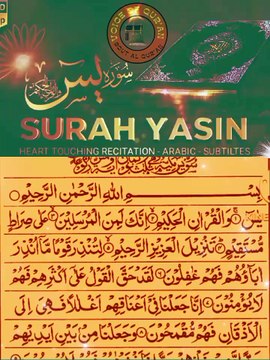 VOICE QURAN
سورة يس
SURAH YASIN
HEART TOUCHING RECITATION - ARABIC - SUBTILTES
بِسْمِ اللهِ الرَّحْمٰنِ الرَّحِيْمِ
يٰسٓ وَالْقُرْاٰنِ الْحَكِيْمِ اِنَّكَ لَمِنَ الْمُرْسَلِيْنَ عَلٰى صِرَاطٍ
مُّسْتَقِيْمٍ تَنْزِيْلَ الْعَزِيْزِ الرَّحِيْمِ لِتُنْذِرَ قَوْمًا مَّاۤ اُنْذِرَ
اٰبَآؤُهُمْ فَهُمْ غٰفِلُوْنَ لَقَدْ حَقَّ الْقَوْلُ عَلٰۤى اَكْثَرِهِمْ فَهُمْ
لَا يُؤْمِنُوْنَ اِنَّا جَعَلْنَا فِيْۤ اَعْنَاقِهِمْ اَغْلٰلًا فَهِيَ اِلَى
الْاَذْقَانِ فَهُمْ مُّقْمَحُوْنَ وَجَعَلْنَا مِنْۢ بَيْنِ اَيْدِيْهِمْ